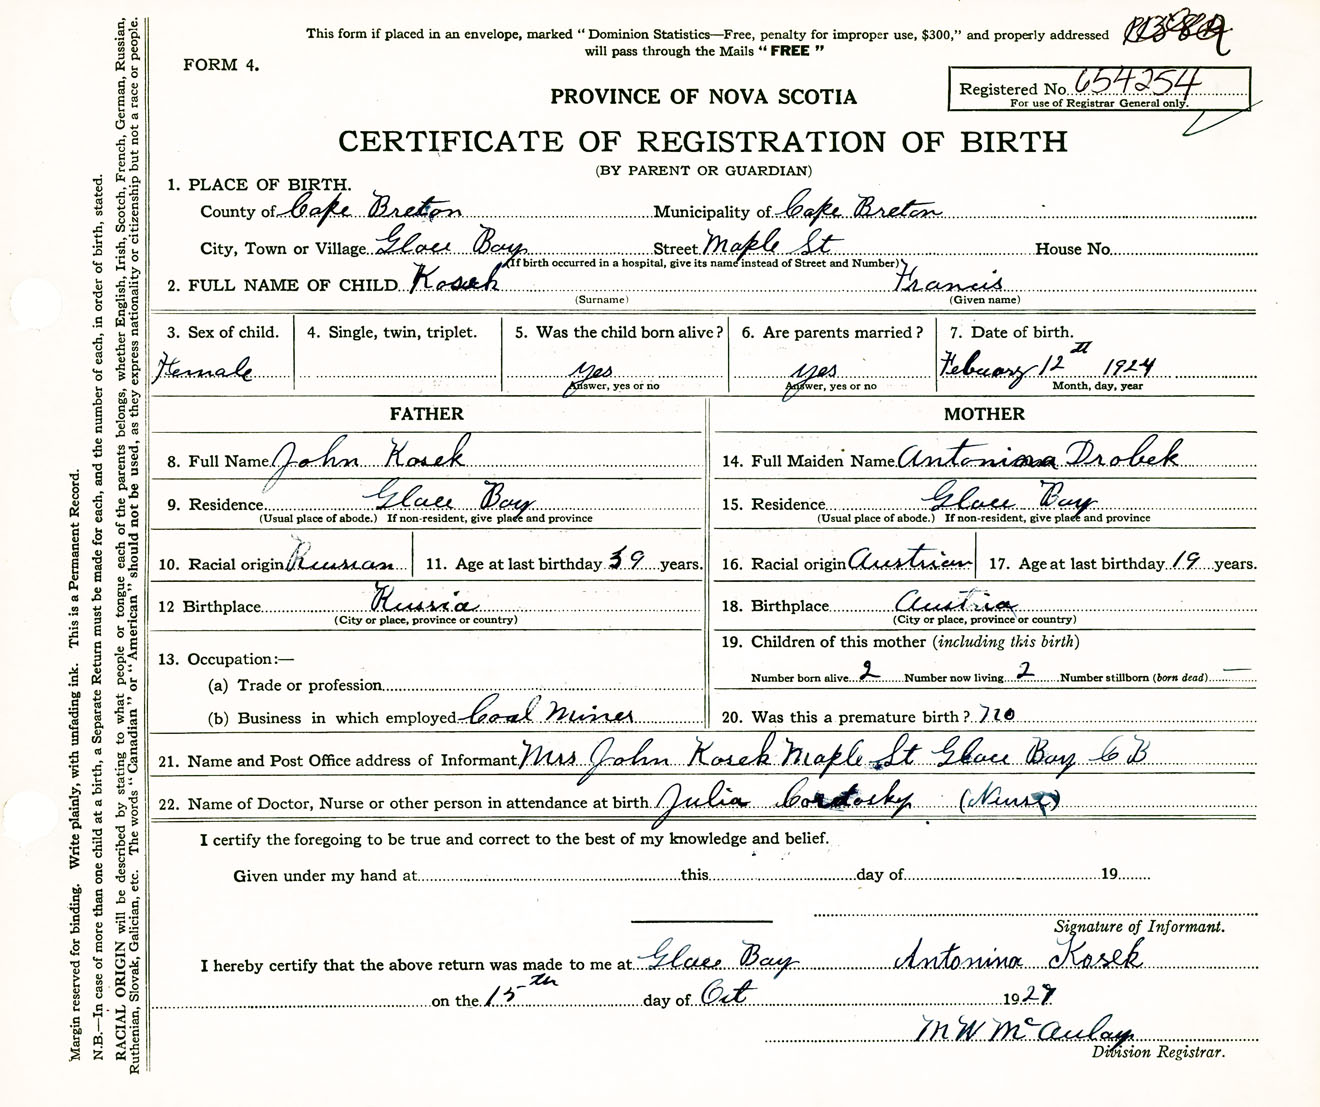 This form if placed in an envelope, marked "Dominion Statistics—Free, penalty for improper use, $300," and properly addressed
will pass through the Mails "FREE"
FORM 4.
Registered No. 654254
For use of Registrar General only.
PROVINCE OF NOVA SCOTIA
CERTIFICATE OF REGISTRATION OF BIRTH
(BY PARENT OR GUARDIAN)
1. PLACE OF BIRTH.
County of Cape Breton Municipality of Cape Breton
City, Town or Village Glace Bay Street Maple St House No.
(If birth occurred in a hospital, give its name instead of Street and Number)
2. FULL NAME OF CHILD Kosek Francis
(Surname) (Given name)
3. Sex of child. 4. Single, twin, triplet. 5. Was the child born alive? 6. Are parents married? 7. Date of birth.
Female yes yes Febuary 12th 1924
Answer, yes or no Answer, yes or no Month, day, year
FATHER MOTHER
8. Full Name John Kosek 14. Full Maiden Name Antonina Drobek
9. Residence Glace Bay 15. Residence Glace Bay
(Usual place of abode.) If non-resident, give place and province (Usual place of abode.) If non-resident, give place and province
10. Racial origin Russian 11. Age at last birthday 39 years. 16. Racial origin Austrian 17. Age at last birthday 19 years.
12 Birthplace Russia 18. Birthplace Austria
(City or place, province or country) (City or place, province or country)
19. Children of this mother (including this birth)
13. Occupation:—
Number born alive 2 Number now living 2 Number stillborn (born dead) —
(a) Trade or profession
(b) Business in which employed Coal Miner 20. Was this a premature birth? no
21. Name and Post Office address of Informant Mrs John Kosek Maple St Glace Bay C B
22. Name of Doctor, Nurse or other person in attendance at birth Julia (Nurse)
I certify the foregoing to be true and correct to the best of my knowledge and belief.
Given under my hand at this day of 19
Signature of Informant.
I hereby certify that the above return was made to me at Glace Bay Antonina Kosek
on the 15th day of Oct 1927
M W McAulay
Division Registrar.
Margin reserved for binding. Write plainly, with unfading ink. This is a Permanent Record.
N.B.—In case of more than one child at a birth, a Separate Return must be made for each, and the number of each, in order of birth, stated.
RACIAL ORIGIN will be described by stating to what people or tongue each of the parents belongs, whether English, Irish, Scotch, French, German, Russian,
Ruthenian, Slovak, Galician, etc. The words "Canadian" or "American" should not be used, as they express nationality or citizenship but not a race or people.